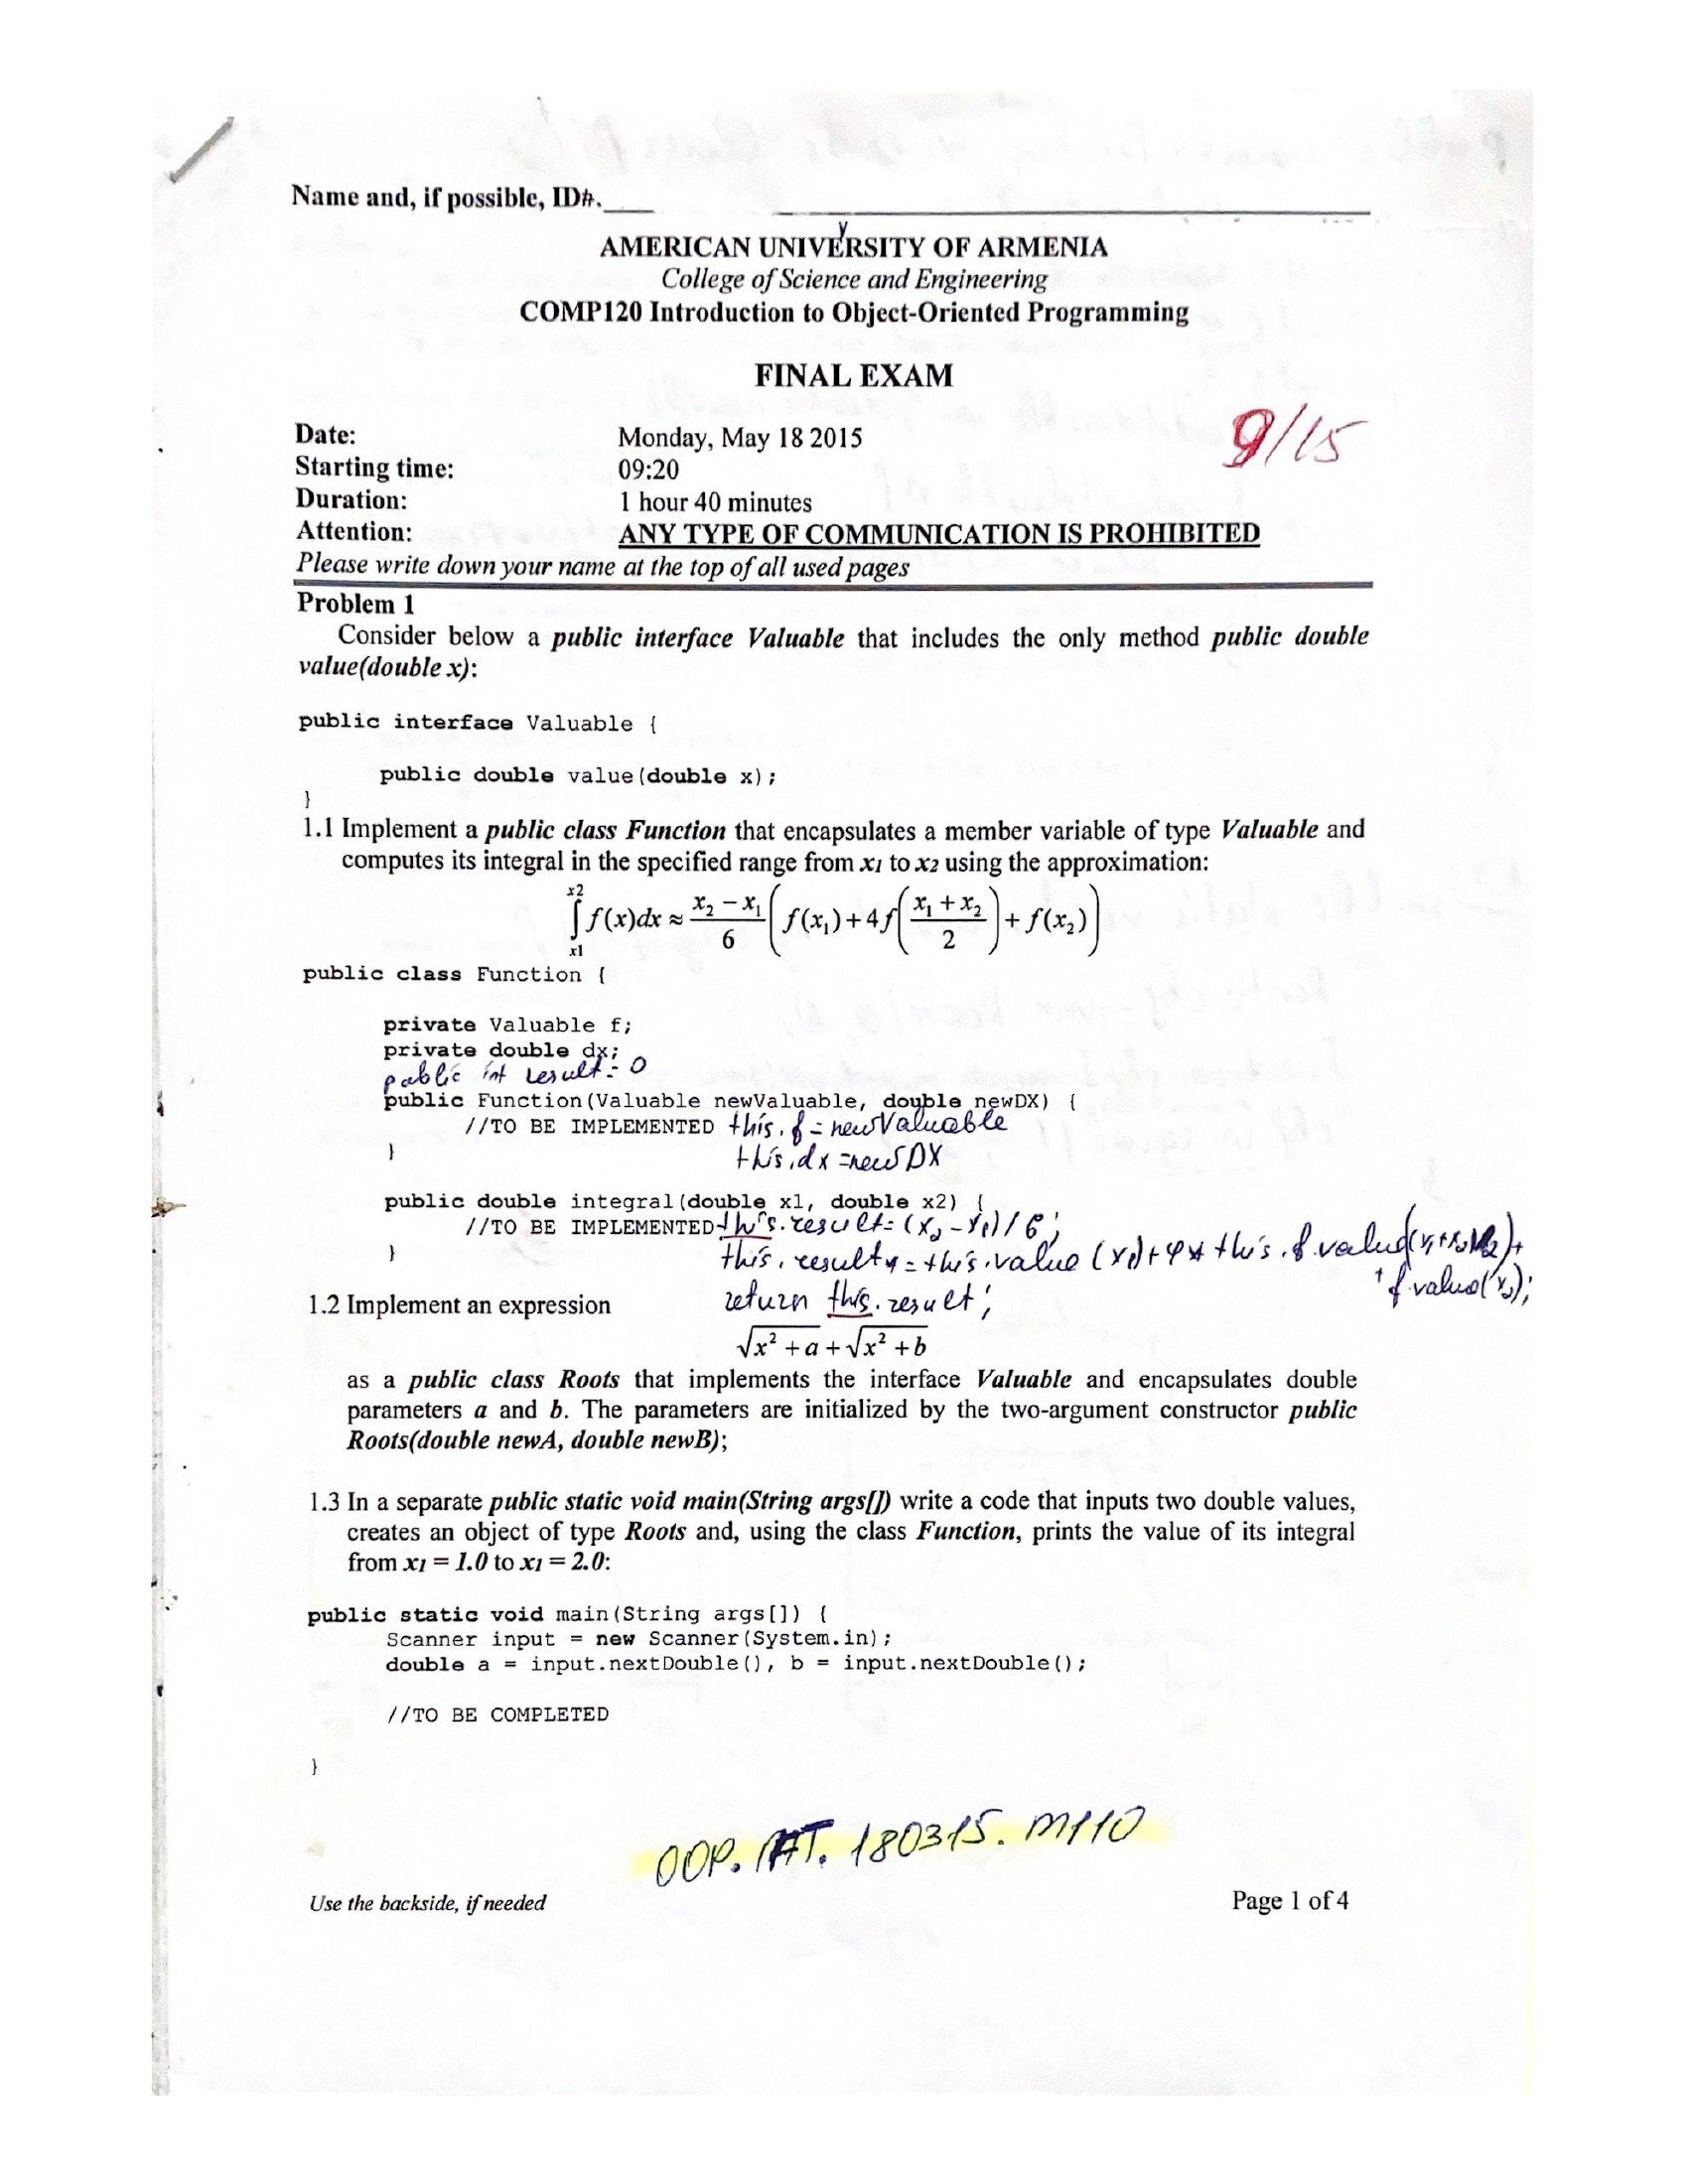 Name and, if possible, ID#.
AMERICAN UNIVERSITY OF ARMENIA
College of Science and Engineering
COMP120 Introduction to Object-Oriented Programming
FINAL EXAM
9/15
Date: Monday, May 18 2015
Starting time: 09:20
Duration: 1 hour 40 minutes
Attention: ANY TYPE OF COMMUNICATION IS PROHIBITED
Please write down your name at the top of all used pages
Problem 1
Consider below a public interface Valuable that includes the only method public double
value(double x):
public interface Valuable {
public double value(double x);
}
1.1 Implement a public class Function that encapsulates a member variable of type Valuable and
computes its integral in the specified range from x1 to x2 using the approximation:
∫_{x1}^{x2} f(x)dx ≈ (x₂ − x₁)/6 ( f(x₁) + 4f( (x₁ + x₂)/2 ) + f(x₂) )
public class Function {
private Valuable f;
private double dx;
public int result = 0
public Function(Valuable newValuable, double newDX) {
//TO BE IMPLEMENTED this.f = newValuable
} this.dx = newDX
public double integral(double x1, double x2) {
//TO BE IMPLEMENTED this.result = (x2 - x1)/6;
} this.result * = this.value (x1) + 4 * this.f.value((x1+x2)/2) +
+ f.value(x2);
1.2 Implement an expression return this.result;
√x² + a + √x² + b
as a public class Roots that implements the interface Valuable and encapsulates double
parameters a and b. The parameters are initialized by the two-argument constructor public
Roots(double newA, double newB);
1.3 In a separate public static void main(String args[]) write a code that inputs two double values,
creates an object of type Roots and, using the class Function, prints the value of its integral
from x1 = 1.0 to x1 = 2.0:
public static void main(String args[]) {
Scanner input = new Scanner(System.in);
double a = input.nextDouble(), b = input.nextDouble();
//TO BE COMPLETED
}
OOP. 180315. M110
Use the backside, if needed Page 1 of 4